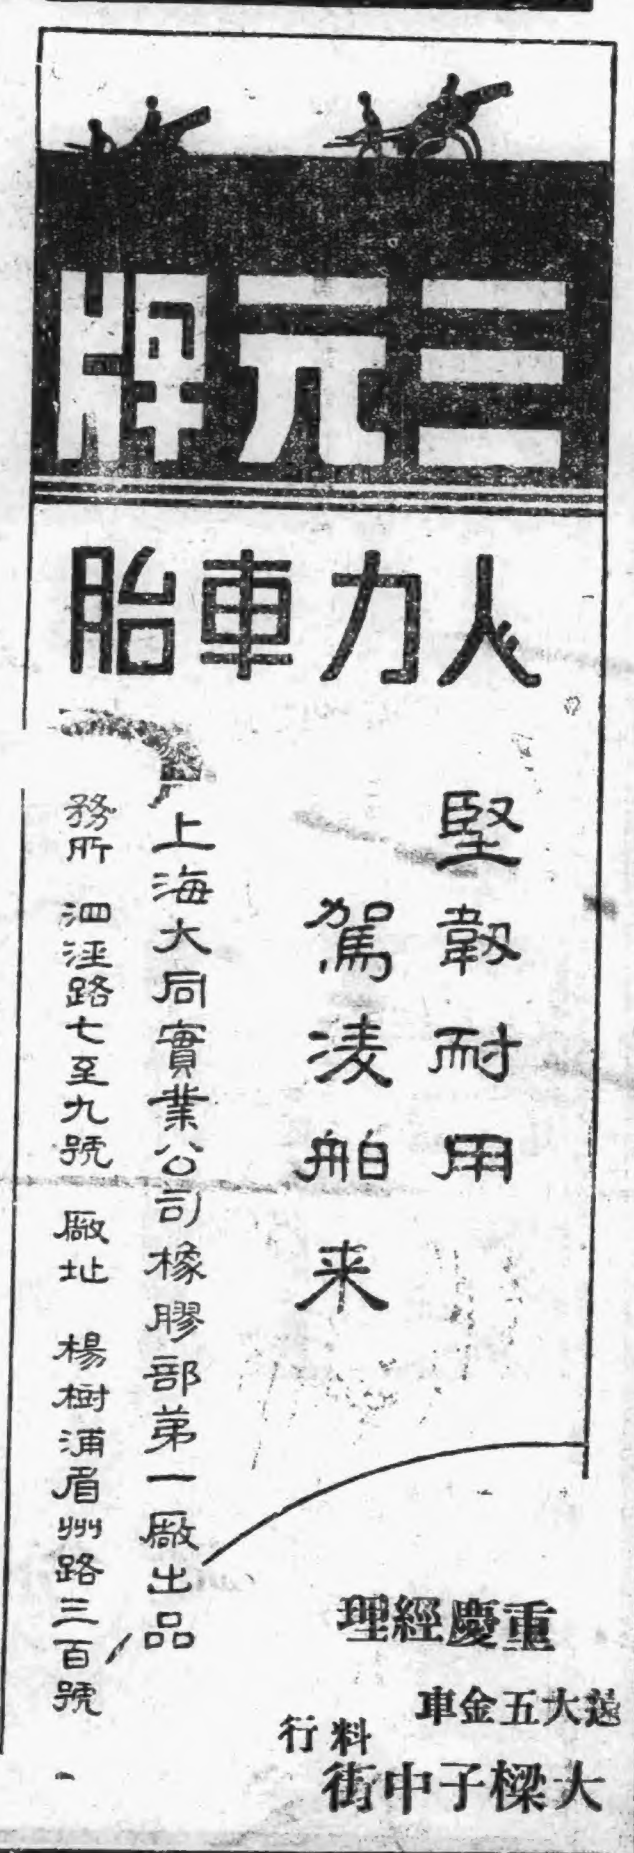 三元牌
人力車胎
堅韌耐用
駕淩舶来
上海大同實業公司橡膠部第一厰出品
務所 泗涇路七至九號 厰址 楊樹浦眉州路三百號
重慶經理
遠大五金車
料行
大樑子中街